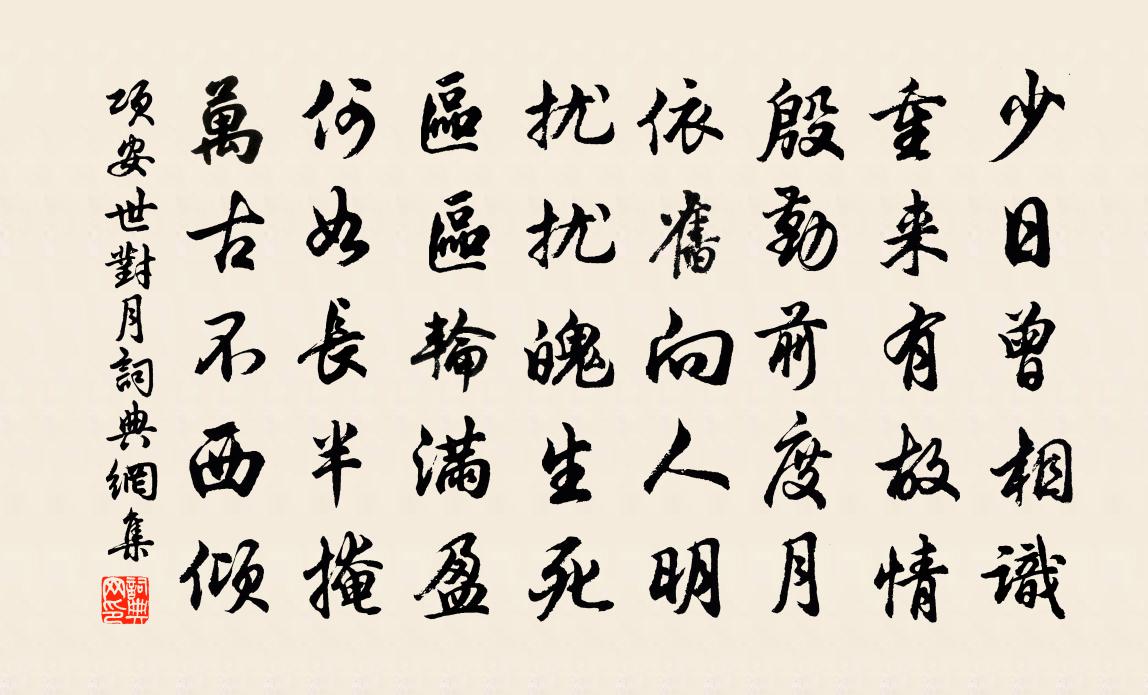 少日曾相識
重来有故情
殷勤前度月
依舊向人明
扰扰魄生死
區區輪满盈
何如長半掩
萬古不西傾
项安世對月詞典網集